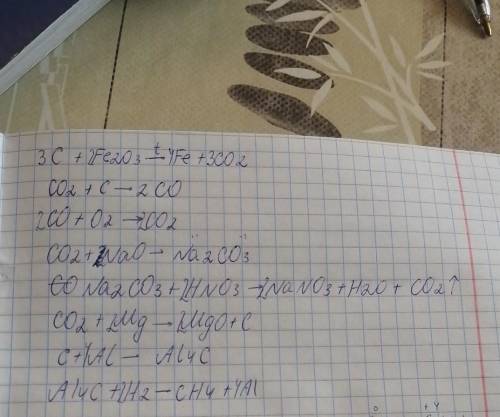 3C + 2Fe2O3 t→ 4Fe + 3CO2
CO2 + C → 2CO
2CO + O2 → 2CO2
CO2 + 2NaO → Na2CO3
CO Na2CO3 + 2HNO3 → 2NaNO3 + H2O + CO2↑
CO2 + 2Mg → 2MgO + C
C + 4Al — Al4C
Al4C + H2 — CH4 + 4Al